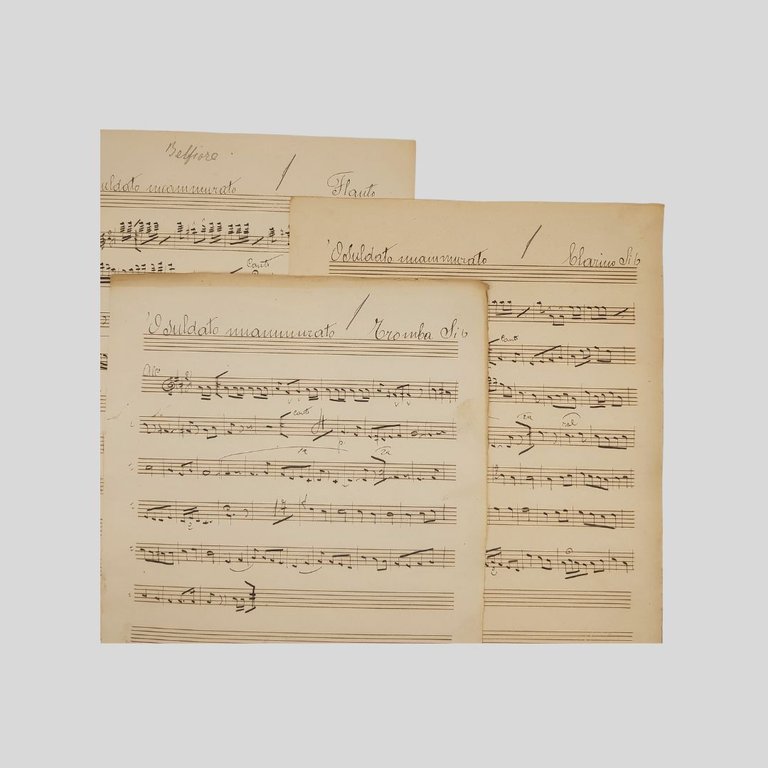 Belfiore
suldato nnammurato Flauto
Canto
'O suldato nnammurato Clarino Sib
Canto
'O suldato nnammurato Tromba Sib
All°
Canto
p